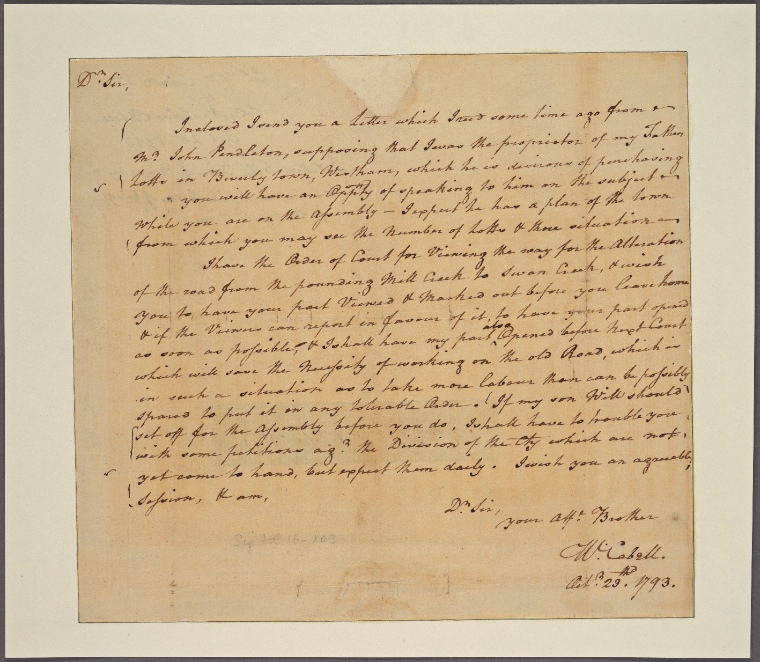 Dr. Sir,
Inclosed I send you a Letter which I recd some time ago from
Mr. John Pendleton, supposing that I was the proprietor of my Father
Lotts in Beverly town, Westham, which he is desirous of purchasing
you will have an Oppty of speaking to him on the subject
While you are on the Assembly – I expect he has a plan of the town
from which you may see the Number of Lotts & there situation
I have the Order of Court for Viewing the way for the Alteration
of the road from the pounding Mill Creek to Swan Creek, & wish
you to have your part Viewed & Marked out before you leave home
& if the Viewers can report in favour of it, to have your part opened
as soon as possible, & I shall have my part also Opened before Next Court
which will save the Necessity of working on the old Road, which is
in such a situation as to take more Labour than can be possibly
spared to put it in any tolerable Order. (If my son Will should
set off for the Assembly before you do, I shall have to trouble you
with some petitions agt. the Division of the Cty which are not
yet come to hand, but expect them daily. I wish you an agreeable
Session, & am,
Dr. Sir,
your Afft. Brother
Wm. Cabell.
Octr. 23th. 1793.